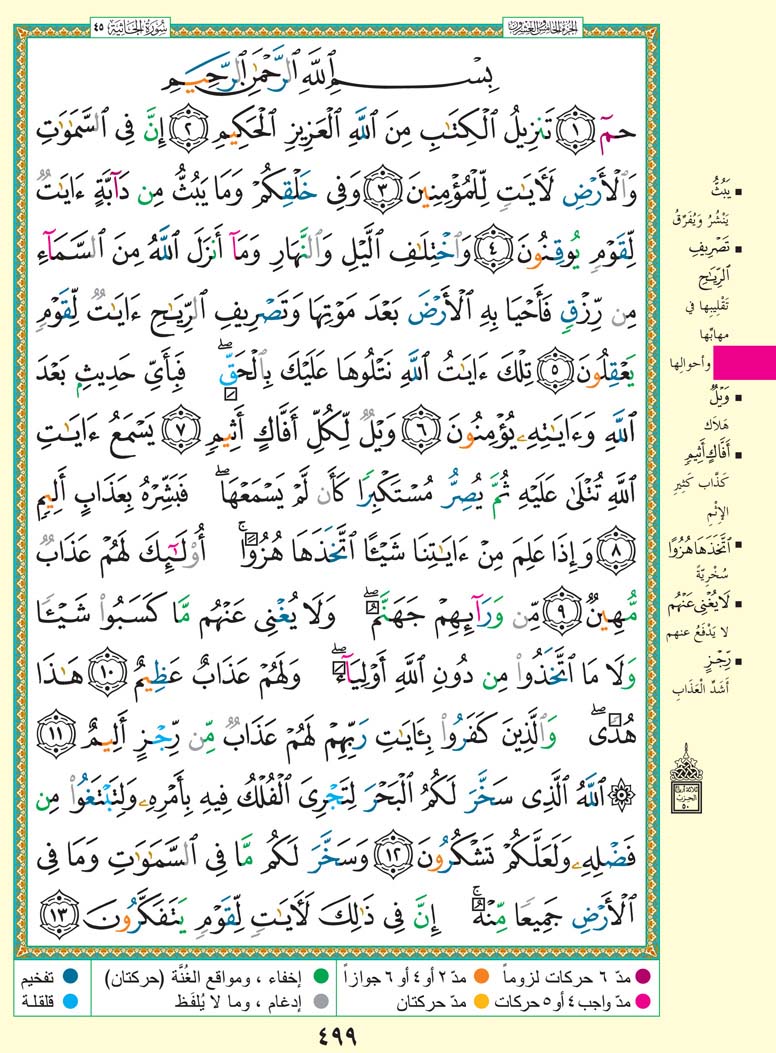 سُورَةُ الجَاثِيَةِ ٤٥
الجُزءُ الخَامِسُ وَالعِشْرُون
بِسْمِ ٱللَّهِ ٱلرَّحْمَٰنِ ٱلرَّحِيمِ
حمٓ ١ تَنزِيلُ ٱلْكِتَٰبِ مِنَ ٱللَّهِ ٱلْعَزِيزِ ٱلْحَكِيمِ ٢ إِنَّ فِى ٱلسَّمَٰوَٰتِ
وَٱلْأَرْضِ لَءَايَٰتٍ لِّلْمُؤْمِنِينَ ٣ وَفِى خَلْقِكُمْ وَمَا يَبُثُّ مِن دَآبَّةٍ ءَايَٰتٌ
لِّقَوْمٍ يُوقِنُونَ ٤ وَٱخْتِلَٰفِ ٱلَّيْلِ وَٱلنَّهَارِ وَمَآ أَنزَلَ ٱللَّهُ مِنَ ٱلسَّمَآءِ
مِن رِّزْقٍ فَأَحْيَا بِهِ ٱلْأَرْضَ بَعْدَ مَوْتِهَا وَتَصْرِيفِ ٱلرِّيَٰحِ ءَايَٰتٌ لِّقَوْمٍ
يَعْقِلُونَ ٥ تِلْكَ ءَايَٰتُ ٱللَّهِ نَتْلُوهَا عَلَيْكَ بِٱلْحَقِّ ۖ فَبِأَىِّ حَدِيثٍۭ بَعْدَ
ٱللَّهِ وَءَايَٰتِهِۦ يُؤْمِنُونَ ٦ وَيْلٌ لِّكُلِّ أَفَّاكٍ أَثِيمٍ ٧ يَسْمَعُ ءَايَٰتِ
ٱللَّهِ تُتْلَىٰ عَلَيْهِ ثُمَّ يُصِرُّ مُسْتَكْبِرًا كَأَن لَّمْ يَسْمَعْهَا ۖ فَبَشِّرْهُ بِعَذَابٍ أَلِيمٍ
٨ وَإِذَا عَلِمَ مِنْ ءَايَٰتِنَا شَيْـًٔا ٱتَّخَذَهَا هُزُوًا ۚ أُو۟لَٰٓئِكَ لَهُمْ عَذَابٌ
مُّهِينٌ ٩ مِّن وَرَآئِهِمْ جَهَنَّمُ ۖ وَلَا يُغْنِى عَنْهُم مَّا كَسَبُوا۟ شَيْـًٔا
وَلَا مَا ٱتَّخَذُوا۟ مِن دُونِ ٱللَّهِ أَوْلِيَآءَ ۖ وَلَهُمْ عَذَابٌ عَظِيمٌ ١٠ هَٰذَا
هُدًى ۖ وَٱلَّذِينَ كَفَرُوا۟ بِـَٔايَٰتِ رَبِّهِمْ لَهُمْ عَذَابٌ مِّن رِّجْزٍ أَلِيمٌ ١١
۞ ٱللَّهُ ٱلَّذِى سَخَّرَ لَكُمُ ٱلْبَحْرَ لِتَجْرِىَ ٱلْفُلْكُ فِيهِ بِأَمْرِهِۦ وَلِتَبْتَغُوا۟ مِن
فَضْلِهِۦ وَلَعَلَّكُمْ تَشْكُرُونَ ١٢ وَسَخَّرَ لَكُم مَّا فِى ٱلسَّمَٰوَٰتِ وَمَا فِى
ٱلْأَرْضِ جَمِيعًا مِّنْهُ ۚ إِنَّ فِى ذَٰلِكَ لَءَايَٰتٍ لِّقَوْمٍ يَتَفَكَّرُونَ ١٣
▪ يَبُثُّ
يَنْشُرُ وَيُفَرِّقُ
▪ تَصْرِيفِ
ٱلرِّيَٰحِ
تَقْلِيبِها في
مهابِّها
وأحوالِها
▪ وَيْلٌ
هَلاك
▪ أَفَّاكٍ أَثِيمٍ
كَذَّاب كَثِيرِ
الإِثْمِ
▪ ٱتَّخَذَهَا هُزُوًا
سُخْرِيَّةً
▪ لَا يُغْنِى عَنْهُم
لا يَدْفَعُ عنهم
▪ رِّجْزٍ
أَشَدِّ الْعَذَابِ
ثلاثة أرباع
الحزب
٥٠
مدّ ٦ حركات لزوماً ● مدّ ٢ أو ٤ أو ٦ جوازاً ● إخفاء ، ومواقع الغُنَّة (حركتان) ● تفخيم
مدّ واجب ٤ أو ٥ حركات ● مدّ حركتان ● إدغام ، وما لا يُلفَظ ● قلقلة
٤٩٩